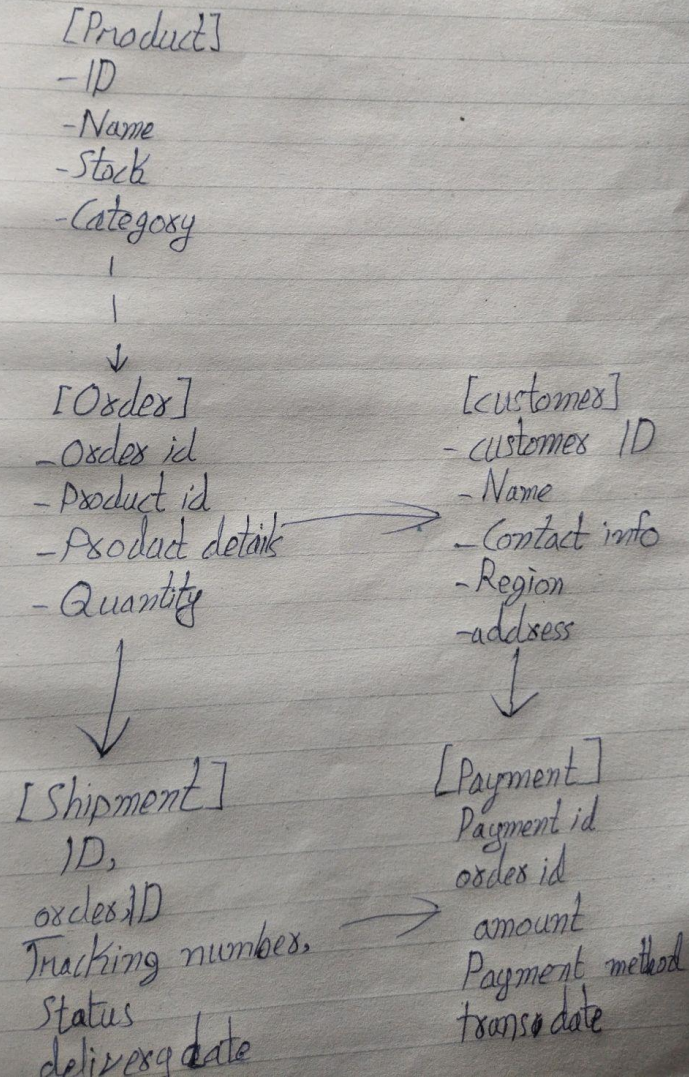 [Product]
- ID
- Name
- Stock
- Category
[Order]
- Order id
- Product id
- Product details
- Quantity
[customer]
- customer ID
- Name
- Contact info
- Region
- address
[Shipment]
ID,
order ID
Tracking number,
Status
delivery date
[Payment]
Payment id
order id
amount
Payment method
trans date